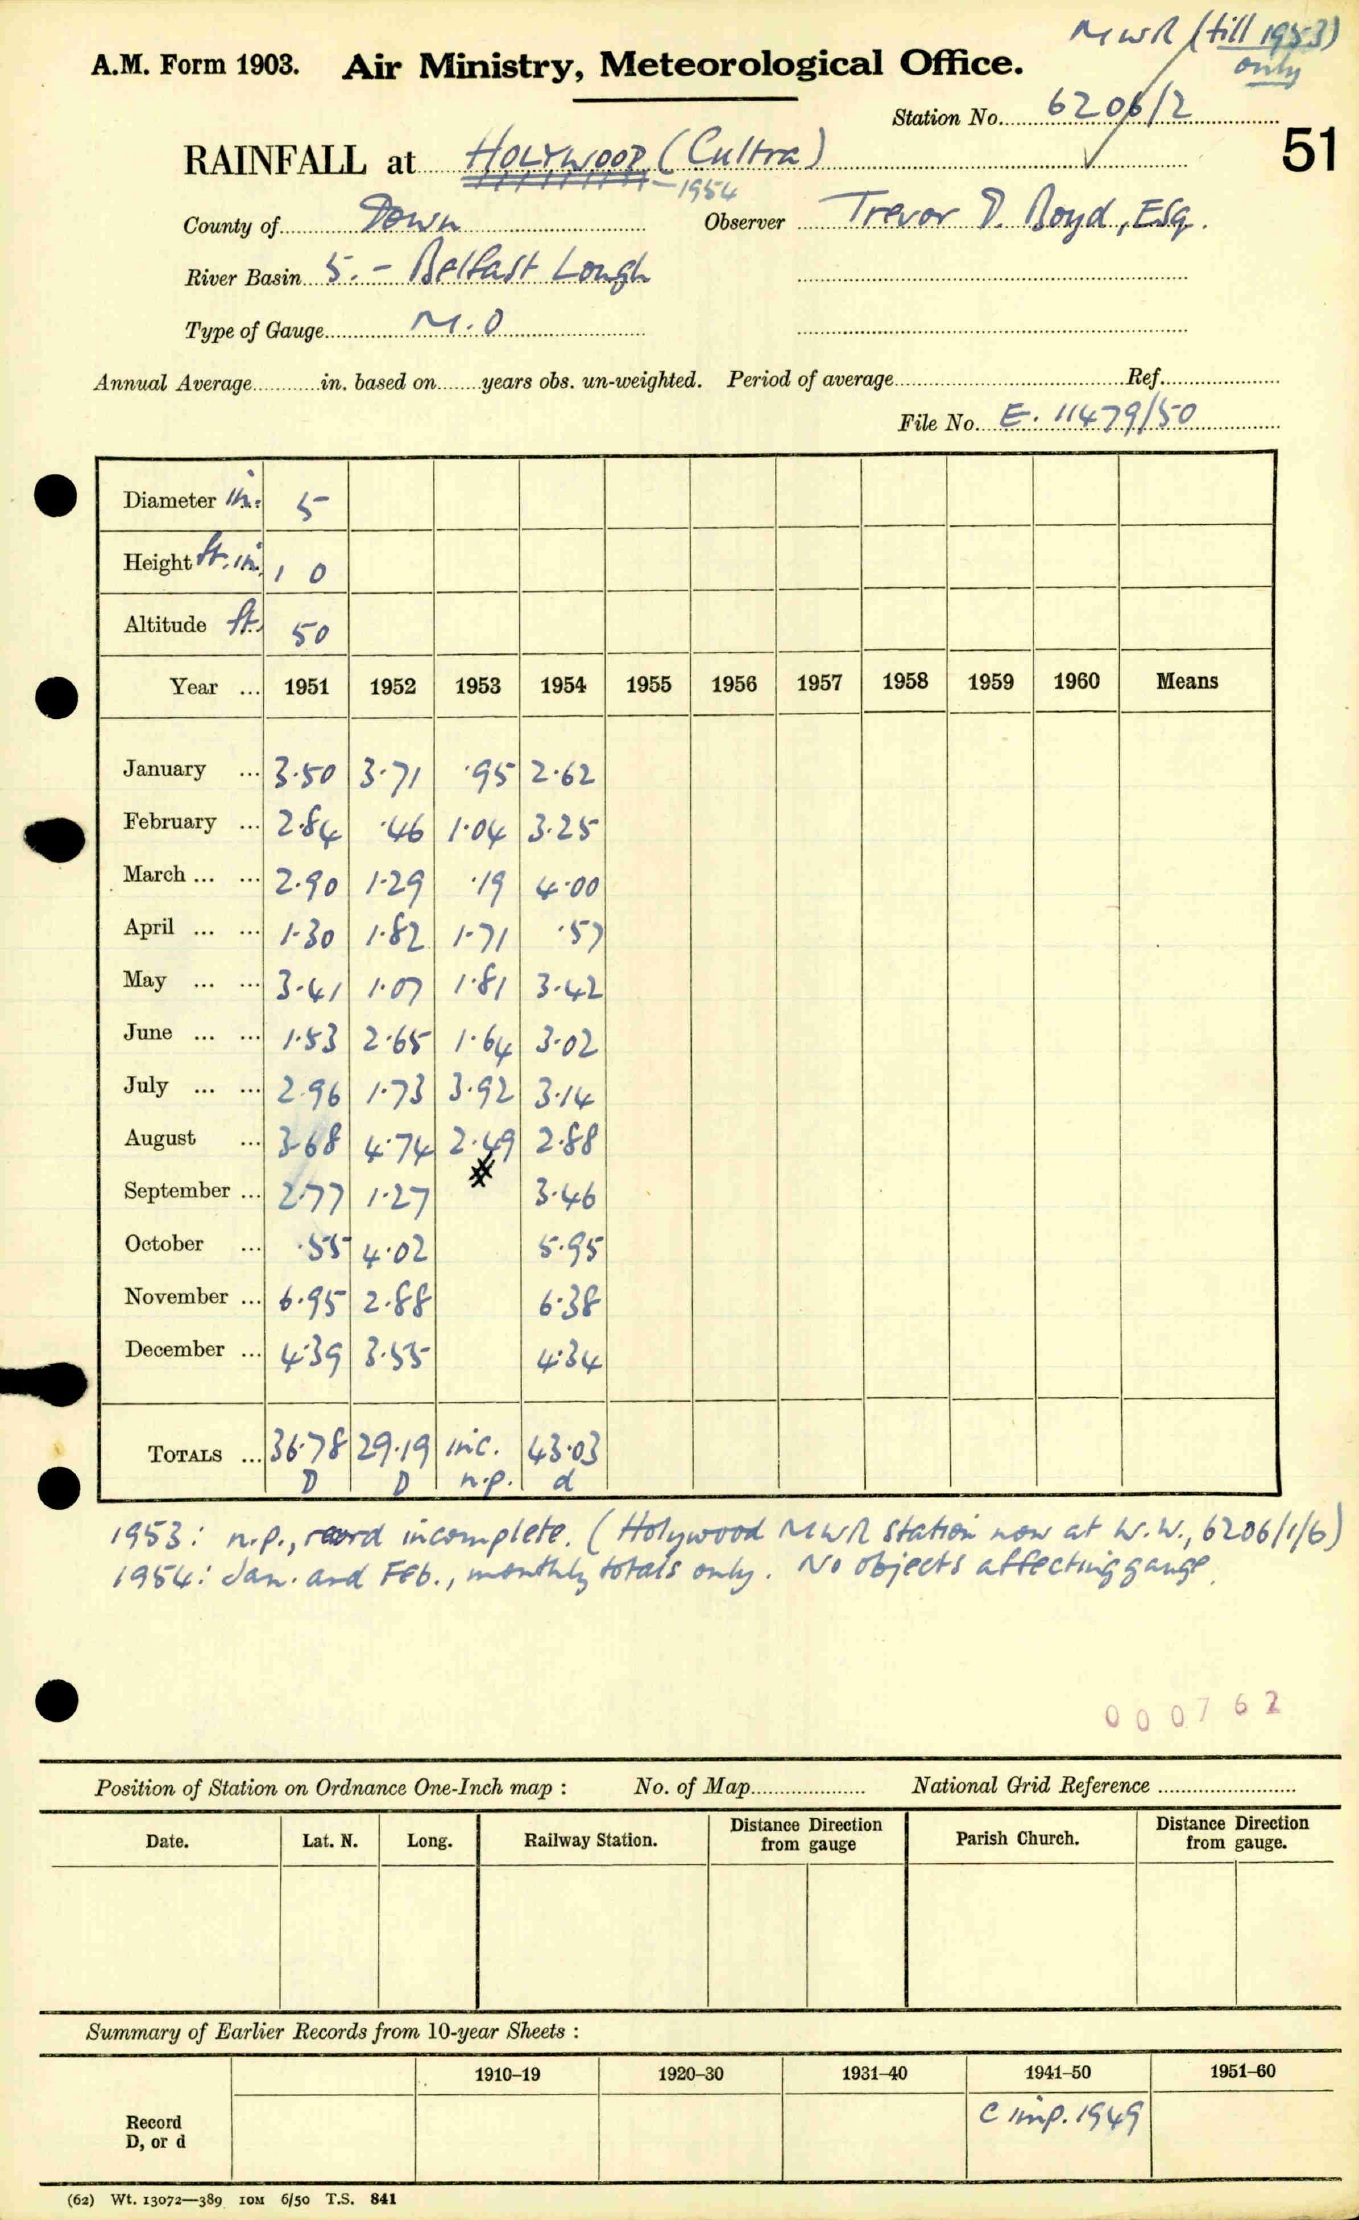 MWR (till 1953)
only
A.M. Form 1903. Air Ministry, Meteorological Office.
Station No. 6206/2
51
RAINFALL at HOLYWOOD (Cultra)
-1954
County of Down Observer Trevor D. Boyd, Esq.
River Basin 5. - Belfast Lough
Type of Gauge M.O
Annual Average in. based on years obs. un-weighted. Period of average Ref.
File No. E. 11479/50
Diameter in. 5
Height ft. in. 1 0
Altitude ft. 50
Year ... 1951 1952 1953 1954 1955 1956 1957 1958 1959 1960 Means
January ... 3.50 3.71 .95 2.62
February ... 2.84 .46 1.04 3.25
March ... ... 2.90 1.29 .19 4.00
April ... ... 1.30 1.82 1.71 .57
May ... ... 3.41 1.07 1.81 3.42
June ... ... 1.53 2.65 1.64 3.02
July ... ... 2.96 1.73 3.92 3.14
August ... 3.68 4.74 2.49 2.88
September ... 2.77 1.27 # 3.46
October ... .55 4.02 5.95
November ... 6.95 2.88 6.38
December ... 4.39 3.55 4.34
TOTALS ... 36.78 29.19 inc. 43.03
D D n.p. d
1953: n.p., record incomplete. (Holywood MWR station now at W.W., 6206/1/6)
1954: Jan. and Feb., monthly totals only. No objects affecting gauge.
000762
Position of Station on Ordnance One-Inch map : No. of Map National Grid Reference
Date. Lat. N. Long. Railway Station. Distance Direction from gauge Parish Church. Distance Direction from gauge.
Summary of Earlier Records from 10-year Sheets :
1910–19 1920–30 1931–40 1941–50 1951–60
Record
D, or d
C imp. 1949
(62) Wt. 13072—389 10M 6/50 T.S. 841